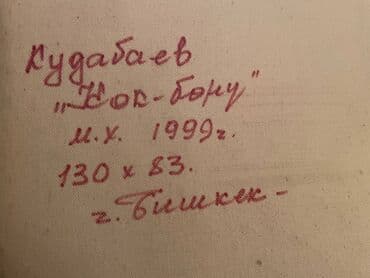 Кудабаев
„Кок-бору"
м.х. 1999г.
130 х 83.
г. Бишкек -